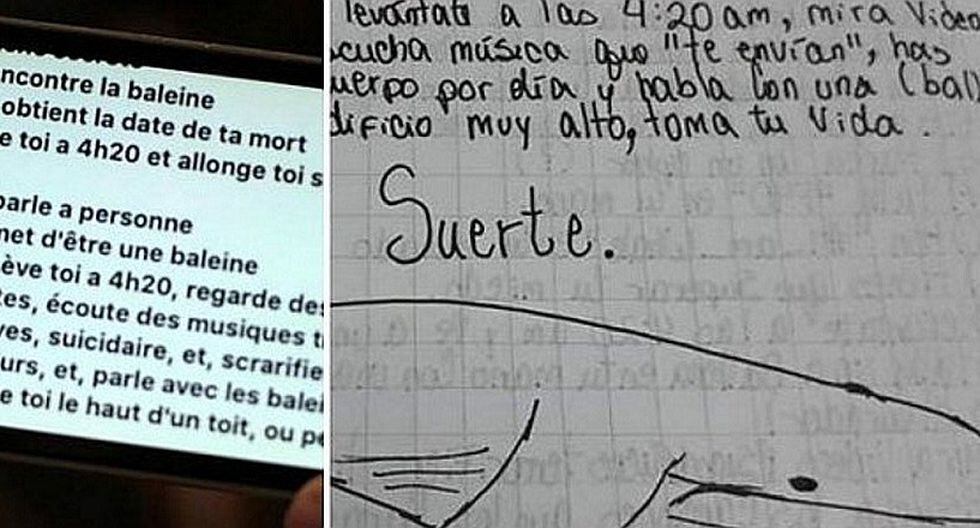 ncontre la baleine
obtient la date de ta mort
e toi a 4h20 et allonge toi s
parle a personne
met d'être une baleine
ève toi a 4h20, regarde des
tes, écoute des musiques t
ves, suicidaire, et, scrarifie
urs, et, parle avec les balei
e toi le haut d'un toit, ou pe
levántate a las 4:20 am, mira Videos
scucha música que "te envían", has
uerpo por día y habla con una (ball
dificio muy alto, toma tu vida.
Suerte.